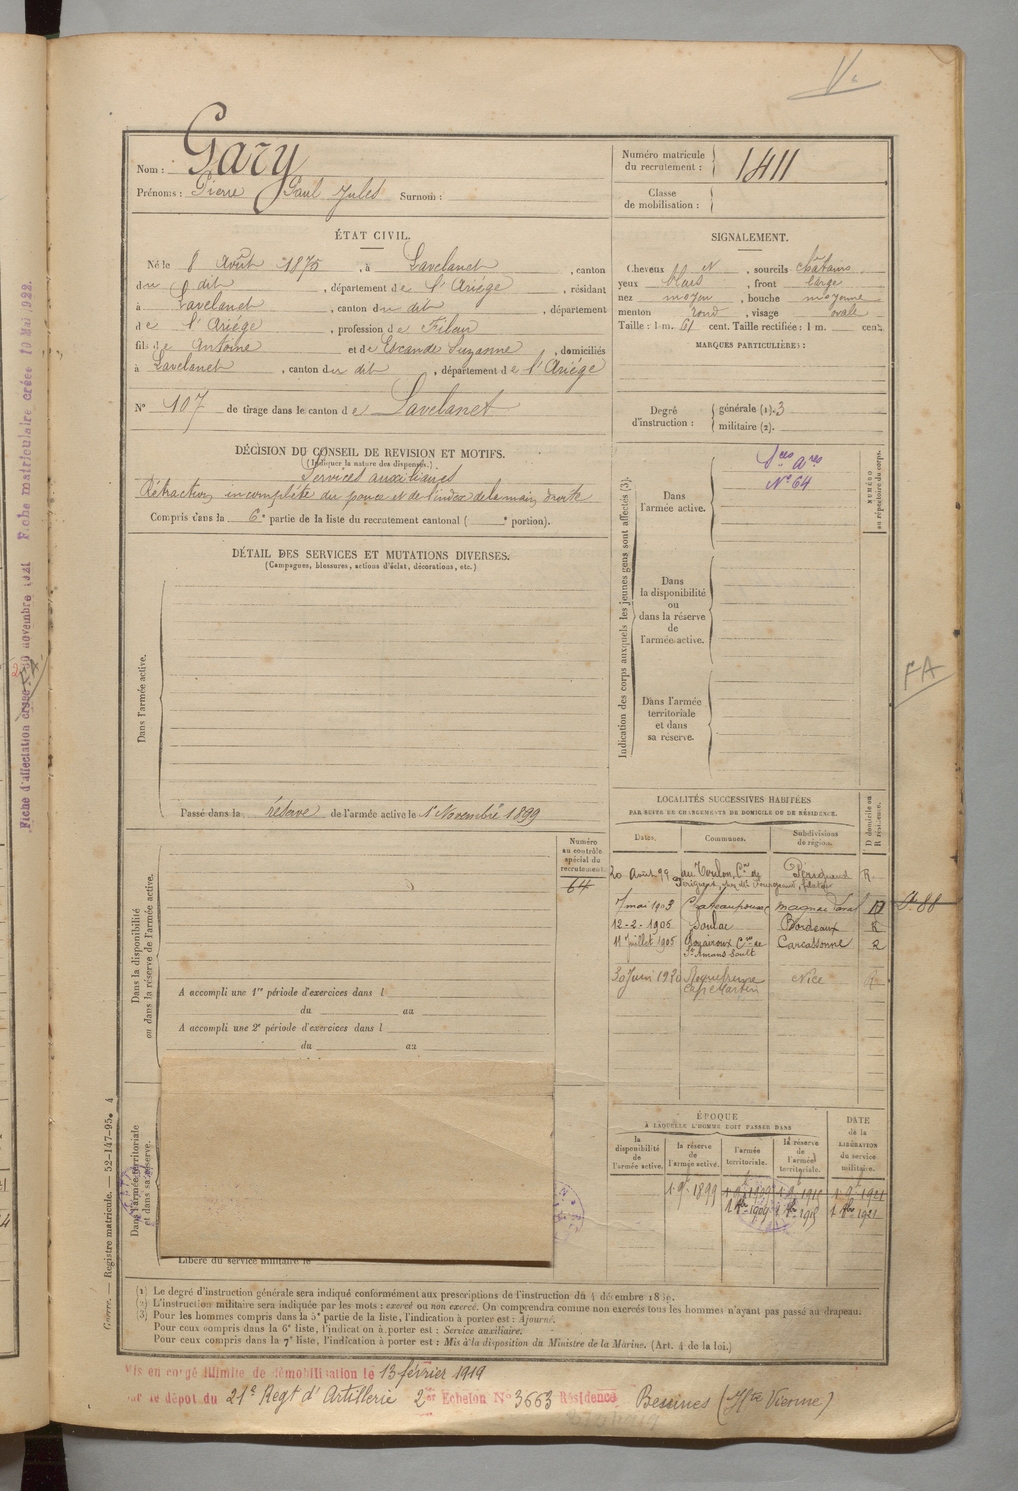 Nom : Gary
Prénoms : Pierre Paul Jules Surnom :
Numéro matricule du recrutement : 1411
Classe de mobilisation :
ÉTAT CIVIL.
Né le 8 Août 1875, à Lavelanet, canton
du dit, département de l'Ariège, résidant
à Lavelanet, canton du dit, département
de l'Ariège, profession de Fileur
fils de Antoine et de Escande Suzanne, domiciliés
à Lavelanet, canton du dit, département de l'Ariège
N° 107 de tirage dans le canton de Lavelanet
SIGNALEMENT.
Cheveux, sourcils châtains
yeux bleus, front large
nez moyen, bouche moyenne
menton rond, visage ovale
Taille : 1 m. 61 cent. Taille rectifiée : 1 m. cent.
MARQUES PARTICULIÈRES :
Degré d'instruction : générale (1). 3
militaire (2).
DÉCISION DU CONSEIL DE REVISION ET MOTIFS.
(Indiquer la nature des dispenses.)
Services auxiliaires
Rétraction incomplète du pouce et de l'index de la main droite
Compris dans la 6e partie de la liste du recrutement cantonal ( e portion).
DÉTAIL DES SERVICES ET MUTATIONS DIVERSES.
(Campagnes, blessures, actions d'éclat, décorations, etc.)
Dans l'armée active.
Passé dans la réserve de l'armée active le 1er Novembre 1899
Indication des corps auxquels les jeunes gens sont affectés (3).
Dans l'armée active.
Ses Ares
N° 64
NUMÉRO au répertoire du corps.
Dans la disponibilité ou dans la réserve de l'armée active.
Dans l'armée territoriale et dans sa réserve.
FA
LOCALITÉS SUCCESSIVES HABITÉES
PAR SUITE DE CHANGEMENTS DE DOMICILE OU DE RÉSIDENCE.
Dates. Communes. Subdivisions de région. D domicile ou R résidence.
20 Août 99 au Toulon, Cne de Périgueux R
7 mai 1903 Magnac Laval D
12-2-1905 Soulac Bordeaux R
11 Juillet 1905 Cne de St Amans Soult Carcassonne R
30 Juin 1920 Roquebrune Cap Martin Nice
Dans la disponibilité ou dans la réserve de l'armée active.
Numéro au contrôle spécial du recrutement.
64
A accompli une 1re période d'exercices dans l
du au
A accompli une 2e période d'exercices dans l
du au
Dans l'armée territoriale et dans sa réserve.
Libéré du service militaire le
ÉPOQUE
À LAQUELLE L'HOMME DOIT PASSER DANS
la disponibilité de l'armée active. la réserve de l'armée active. l'armée territoriale. la réserve de l'armée territoriale.
DATE de la LIBÉRATION du service militaire.
1. 9. 1899
Guerre. — Registre matricule. — 52-147-95. 4
(1) Le degré d'instruction générale sera indiqué conformément aux prescriptions de l'instruction du 4 décembre 1889.
(2) L'instruction militaire sera indiquée par les mots : exercé ou non exercé. On comprendra comme non exercés tous les hommes n'ayant pas passé au drapeau.
(3) Pour les hommes compris dans la 5e partie de la liste, l'indication à porter est : Ajourné.
Pour ceux compris dans la 6e liste, l'indication à porter est : Service auxiliaire.
Pour ceux compris dans la 7e liste, l'indication à porter est : Mis à la disposition du Ministre de la Marine. (Art. 4 de la loi.)
Mis en congé illimité de démobilisation le 13 février 1919
par le dépôt du 21e Regt d'Artillerie 2e Echelon N° 3663 Résidence Bessines (Hte Vienne)
Fiche matriculaire créée 10 Mai 1922.